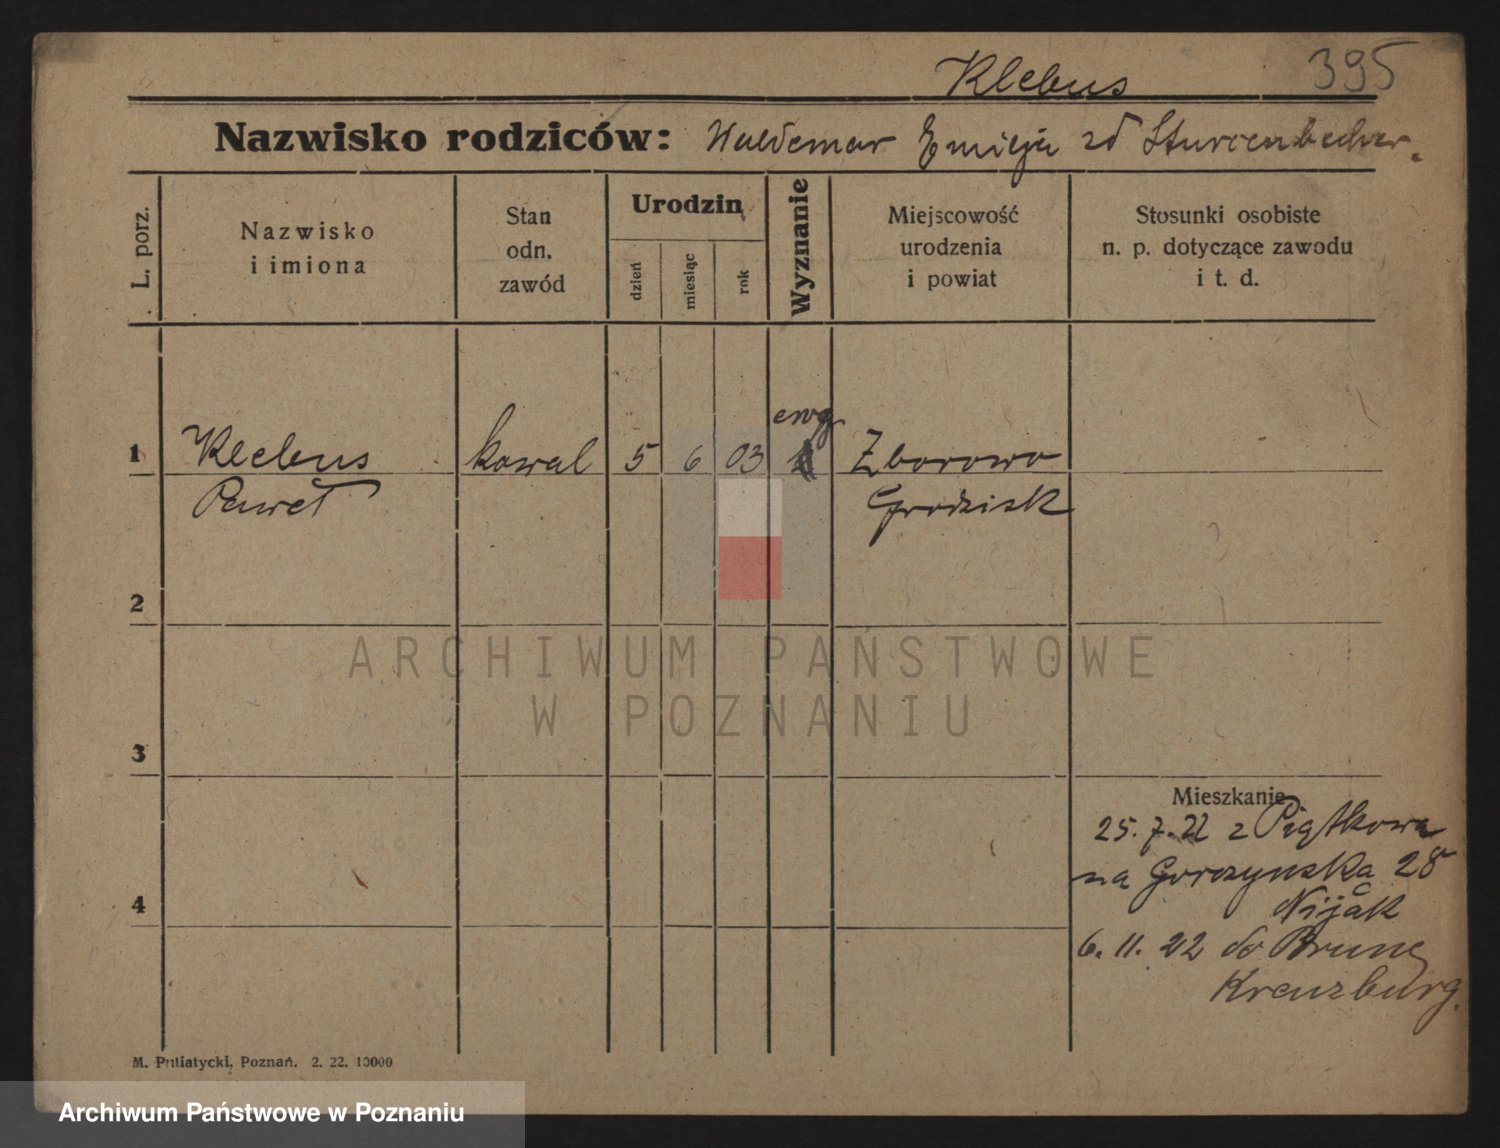 Klebus 395
Nazwisko rodziców: Waldemar Emilja zd Sturcenbecher.
L. porz.
Nazwisko
i imiona
Stan
odn.
zawód
Urodzin
dzień
miesiąc
rok
Wyznanie
Miejscowość
urodzenia
i powiat
Stosunki osobiste
n. p. dotyczące zawodu
i t. d.
ewg
1 Klebus kowal 5 6 03 Zborowo
Paweł Grodzisk
2
3
4
Mieszkanie
25. 7. 22 z Piątkowa
na Gorczynska 28
Nijak
6. 11. 22 do
Kreuzburg.
M. Putiatycki, Poznań. 2. 22. 10000
ARCHIWUM PAŃSTWOWE
W POZNANIU
Archiwum Państwowe w Poznaniu